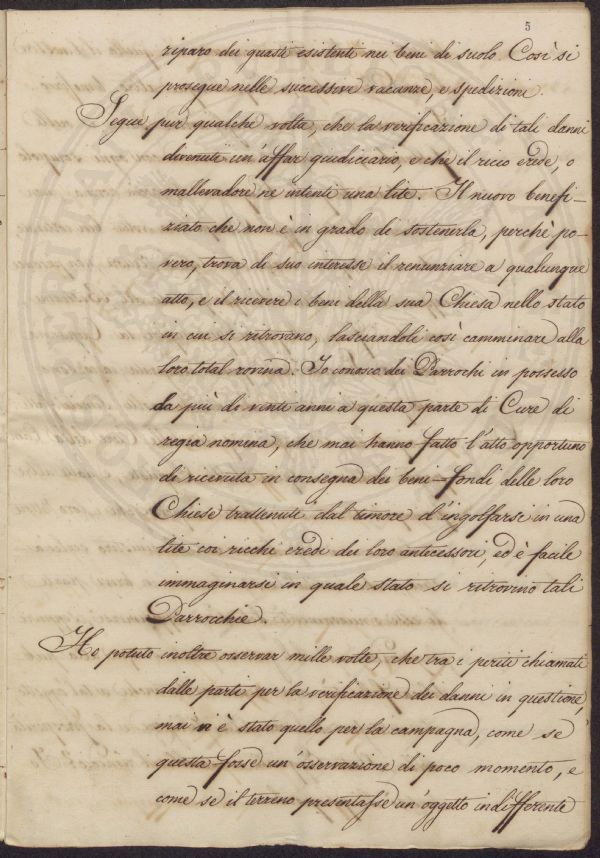 5
riparo dei guasti esistenti nei beni di suolo. Così si
prosegue nelle successive vacanze, e spedizioni.
Segue pur qualche volta, che la verificazione di tali danni
divenuti un'affar giudiciario, e che il ricco erede, o
mallevadore ne intenti una lite. Il nuovo benefi-
ziato che non è in grado di sostenerla, perchè po-
vero, trova di suo interesse il renunziare a qualunque
atto, e il ricevere i beni della sua Chiesa nello stato
in cui si ritrovano, lasciandoli così camminare alla
loro total rovina. Io conosco dei Parrochi in possesso
da più di vinti anni a questa parte di Cure di
regia nomina, che mai hanno fatto l'atto opportuno
di ricevuta in consegna dei beni-fondi delle loro
Chiese trattenuti dal timore d'ingolfarsi in una
lite coi ricchi eredi dei loro antecessori, ed è facile
immaginarsi in quale stato si ritrovino tali
Parrocchie.
Ho potuto inoltre osservar mille volte, che tra i periti chiamati
dalle parti per la verificazione dei danni in questione,
mai vi è stato quello per la campagna, come se
questa fosse un'osservazione di poco momento, e
come se il terreno presentasse un'oggetto indifferente